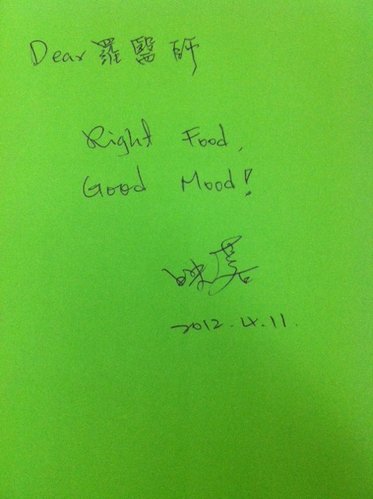 Dear 羅醫師
Right Food,
Good Mood!
2012.4.11.